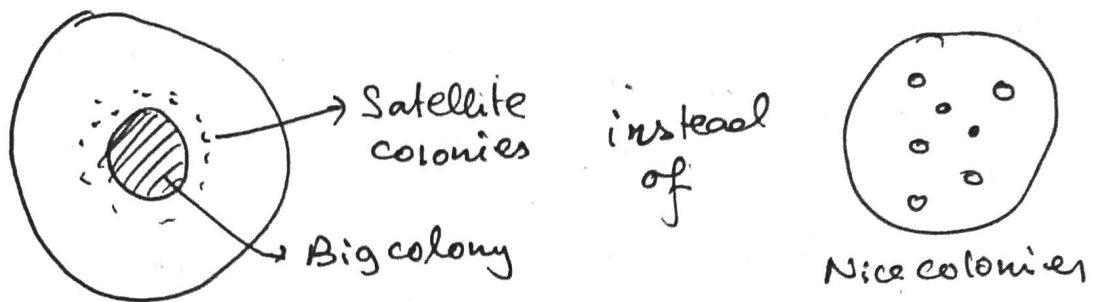 Satellite
colonies
Big colony
instead
of
Nice colonies